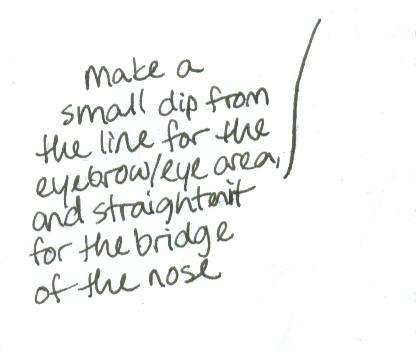 make a
small dip from
the line for the
eyebrow/eye area,
and straighten it
for the bridge
of the nose